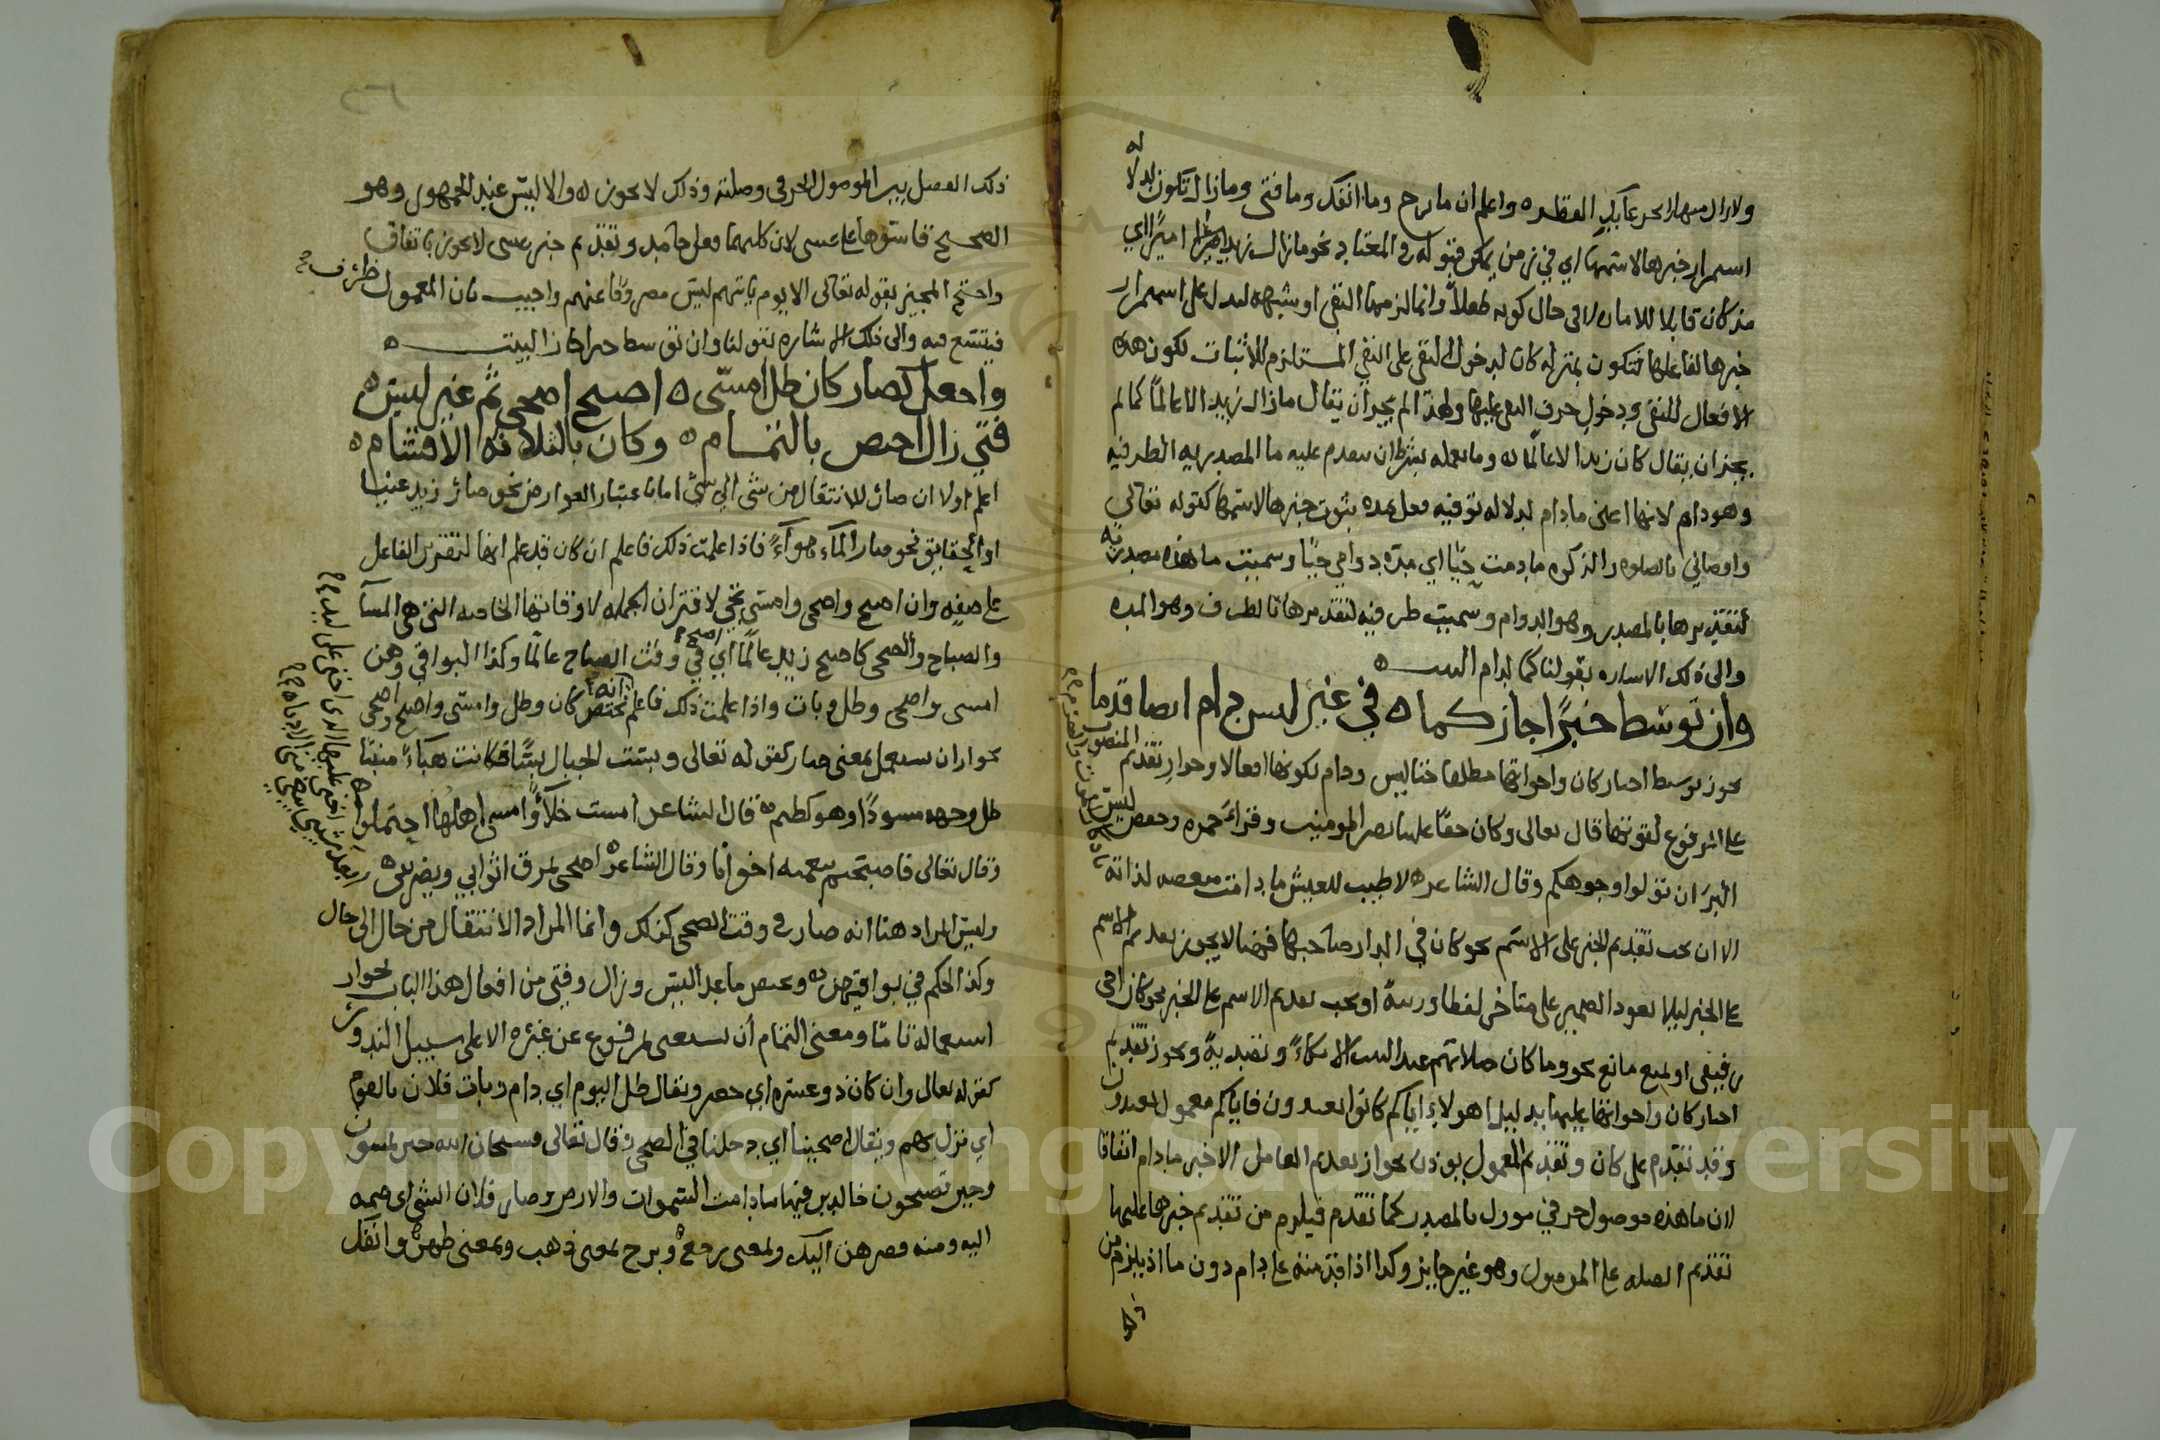 ولازال منهلا بجرعائك القطره واعلم ان ما برح وما انفك وما فتى وما زال تكون لدلالة
استمرار خبرها لاسمها اي في زمن يمكن قبوله في المعتاد نحو ما زال زيد اميرا اي
مذ كان قابلا للاماره لا في حال كونه طفلا وانما لزمها النفي او شبهه لتدل على استمرار
خبرها لفاعلها فتكون بمنزلة كان لدخول النفي على النفي المستلزم للاثبات لكون هذه
الافعال للنفي ودخول حرف النفي عليها ولهذا لم يجز ان يقال ما زال زيد الا عالما كما لم
يجز ان يقال كان زيد الا عالما وما يعمله بشرط ان يتقدم عليه ما المصدريه الظرفيه
وهو دام لانها اعني ما دام لدلالة توقيه فعل بمدة ثبوت خبرها لاسمها كقوله تعالى
واوصاني بالصلوه والزكوه ما دمت حيا اي مدة دوامي حيا وسميت ما هذه مصدريه
لتقديرها بالمصدر وهو الدوام وسميت ظرفيه لتقديرها بالظرف وهو المده
والى ذلك الاشاره بقولنا كما لدام البيت
وان توسط خبرا جاز كما في غير ليس دام ايضا قدما
يجوز توسط اخبار كان واخواتها مطلقا حتى ليس ودام لكونها افعالا وجواز تقديم المنصوب
على المرفوع لقوتها قال تعالى وكان حقا علينا نصر المومنين وقراة حمزه وحفص ليس
البر ان تولوا وجوهكم وقال الشاعر لا طيب للعيش ما دامت منغصه لذاته
الا ان يجب تقديم الخبر على الاسم نحو كان في الدار صاحبها فهنا لا يجوز تقديم الاسم
على الخبر ليلا يعود الضمير على متاخر لفظا ورتبة او يجب تقديم الاسم على الخبر نحو كان اخي
رفيقي او لمنع مانع نحو وما كان صلاتهم عند البيت الا مكاء وتصدية ويجوز تقديم
اخبار كان واخواتها عليها بدليل اهولاء اياكم كانوا يعبدون فاياكم معمول يعبدون
وقد تقدم على كان وتقديم المعمول يوذن بجواز تقديم العامل الا خبر ما دام اتفاقا
لان ما هذه موصول حرفي موول بالمصدر كما تقدم فيلزم من تقديم خبرها عليها
تقديم الصله على الموصول وهو غير جايز وكذا اذا قدمته على دام دون ما اذ يلزم من
ذلك
ذلك الفصل بين الموصول الحرفي وصلته وذلك لا يجوز والا ليس عند الجمهور وهو
الصحيح قاسوها على عسى لان كليهما فعل جامد وتقديم خبر عسى لا يجوز باتفاق
واحتج المجيز بقوله تعالى الا يوم ياتيهم ليس مصروفا عنهم واجيب بان المعمول ظرف
فيتسع فيه والى ذلك الاشاره بقولنا وان توسط خبرا جاز البيت
واجعل كصار كان ظل امسى اصبح اضحى ثم غير ليس
فتي زال احصص بالتمام وكان بالثلاثة الاقسام
اعلم اولا ان صار للانتقال من شي الى شي اما باعتبار العوارض نحو صار زيد غنيا
او الحقايق نحو صار الماء هواء فاذا علمت ذلك فاعلم ان كان قد علم انها لتقرير الفاعل
على صفه وان اصبح واضحى وامسى تجي لاقتران الجمله لاوقاتها الخاصه التي هي المسا
والصباح والضحى كاصبح زيد عالما اي في وقت الصباح عالما وكذا البواقي وهن
امسى واضحى وظل وبات واذا علمت ذلك فاعلم انه تختص كان وظل وامسى واصبح واضحى
بجواز ان تستعمل بمعنى صار كقوله تعالى وبست الجبال بسا فكانت هباء منبثا
ظل وجهه مسودا وهو كظيم قال الشاعر امست خلاء وامسى اهلها احتملوا
وقال تعالى فاصبحتم بنعمته اخوانا وقال الشاعر اضحى يمزق اثوابي ويضربني
وليس المراد هنا انه صار في وقت الضحى كذلك وانما المراد الانتقال من حال الى حال
وكذا الحكم في بواقيهن ويختص ما عدا ليس وزال وفتي من افعال هذا الباب بجواز
استعماله تاما ومعنى التمام ان يستغنى بمرفوع عن غيره الا على سبيل الندور
كقوله تعالى وان كان ذو عسره اي حضر ويقال ظل اليوم اي دام وبات فلان بالقوم
اي نزل بهم ويقال اضحينا اي دخلنا في الضحى وقال تعالى فسبحان الله حين تمسون
وحين تصبحون خالدين فيها ما دامت السموات والارض وصار فلان الشي اي ضمه
اليه ومنه فصرهن اليك وبمعنى رجع وبرح بمعنى ذهب وبمعنى ظهر وانفك
اخنى عليها الذي اخنى على لبد